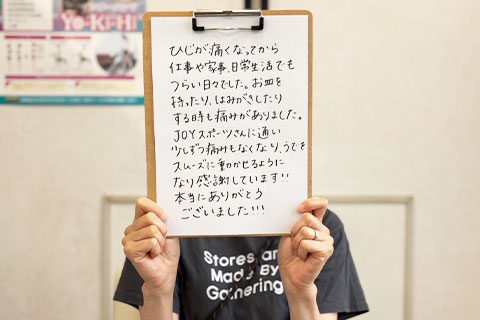 Yo-Ki-Hi
ひじが痛くなってから
仕事や家事、日常生活でも
つらい日々でした。お皿を
持ったり、はみがきしたり
する時も痛みがありました。
JOYスポーツさんに通い
少しずつ痛みもなくなり、うでを
スムーズに動かせるように
なり感謝しています!!
本当にありがとう
ございました!!!
Stores, an
Made By
Gathering